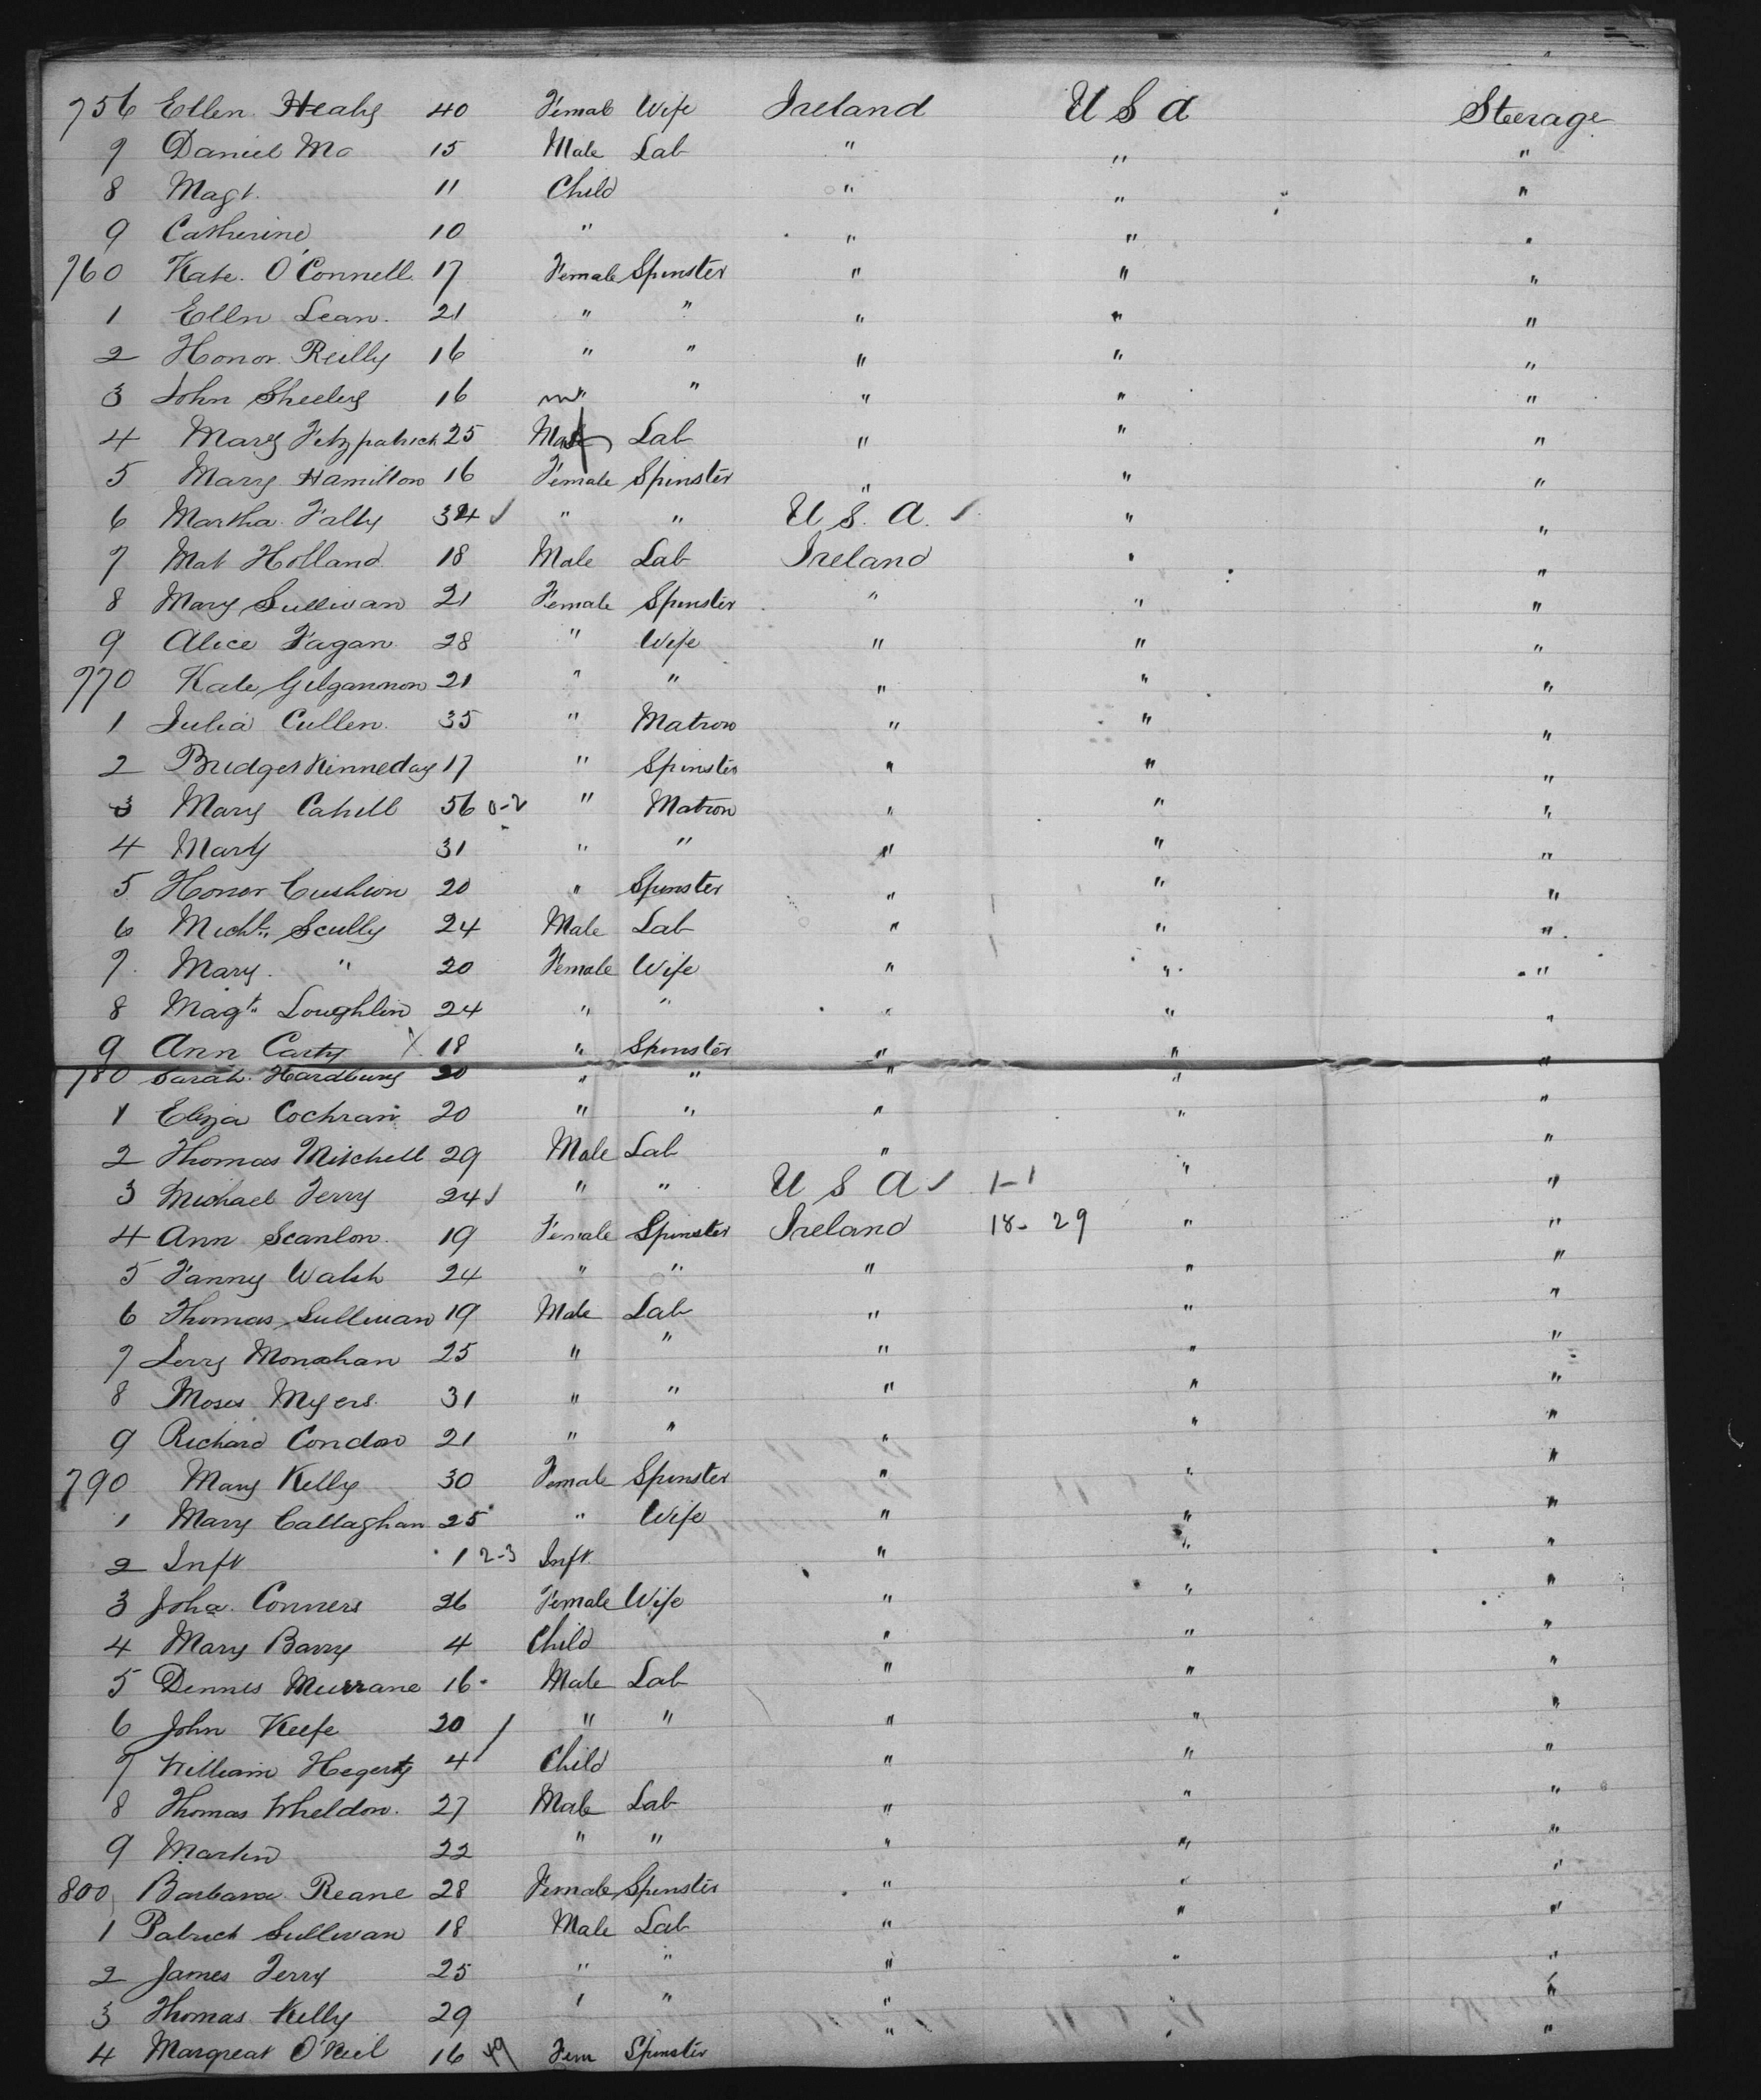 756 Ellen Healy 40 Female Wife Ireland U S A Steerage
7 Daniel Mc 15 Male Lab " " "
8 Magt. 11 Child " " "
9 Catherine 10 " " " "
760 Kate O'Connell 17 Female Spinster " " "
1 Ellen Lean 21 " " " " "
2 Honor Reilly 16 " " " " "
3 John Sheehy 16 m " " " "
4 Mary Fitzpatrick 25 Male Lab " " "
5 Mary Hamilton 16 Female Spinster " " "
6 Martha Falty 34 ✓ " " U.S.A. ✓ " "
7 Mat Holland 18 Male Lab Ireland " "
8 Mary Sullivan 21 Female Spinster " " "
9 Alice Fagan 28 " Wife " " "
770 Kate Gilgannon 21 " " " " "
1 Julia Cullen 35 " Matron " " "
2 Bridget Kinneday 17 " Spinster " " "
3 Mary Cahill 56 0-2 " Matron " " "
4 Mary 31 " " " " "
5 Honor Cushion 20 " Spinster " " "
6 Michl. Scully 24 Male Lab " " "
7 Mary " 20 Female Wife " " "
8 Magt. Loughlin 24 " " " " "
9 Ann Carty X 18 " Spinster " " "
780 Sarah 20 " " " " "
1 Eliza Cochran 20 " " " " "
2 Thomas Mitchell 29 Male Lab " " "
3 Michael Terry 24 ✓ " " U S A ✓ 1-1 "
4 Ann Scanlon 19 Female Spinster Ireland 18-29 " "
5 Fanny Walsh 24 " " " " "
6 Thomas Sullivan 19 Male Lab " " "
7 Jerry Monahan 25 " " " " "
8 Moses Myers 31 " " " " "
9 Richard Condon 21 " " " " "
790 Mary Kelly 30 Female Spinster " " "
1 Mary Callaghan 25 " Wife " " "
2 Inft 1 2-3 Inft " " "
3 Joha Conners 26 Female Wife " " "
4 Mary Barry 4 Child " " "
5 Dennis Murrane 16 Male Lab " " "
6 John Keefe 20 / " " " " "
7 William Hegerty 4 Child " " "
8 Thomas Wheldon 27 Male Lab " " "
9 Martin 22 " " " " "
800 Barbara Reane 28 Female Spinster " " "
1 Patrick Sullivan 18 Male Lab " " "
2 James Terry 25 " " " " "
3 Thomas Kelly 29 " " " " "
4 Margreat O'Neil 16 49 Fem Spinster " " "